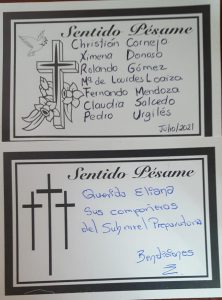 Sentido Pésame
Christian Cornejo
Ximena Donoso
Rolando Gómez
Mª de Lourdes Loaiza
Fernando Mendoza
Claudia Salcedo
Pedro Urgilés
Julio/2021
Sentido Pésame
Querida Eliana
Sus compañeros
del Subnivel Preparatoria
Bendiciones